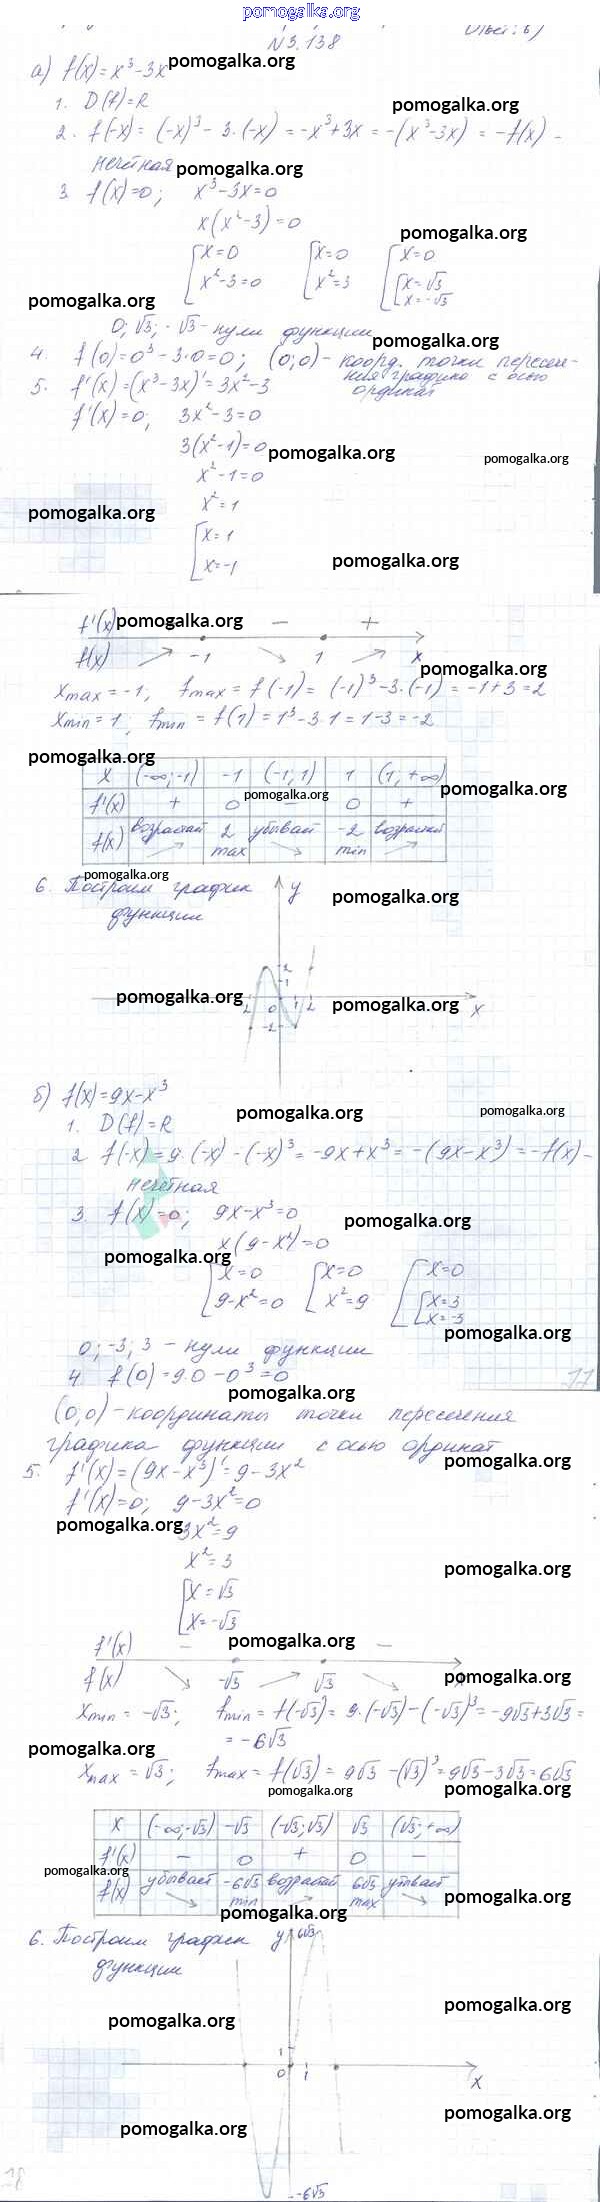 pomogalka.org
N3.138
Ответ: б)
а) f(x)=x³-3x pomogalka.org
1. D(f)=R pomogalka.org
2. f(-x)=(-x)³-3·(-x)=-x³+3x=-(x³-3x)=-f(x) -
нечётная pomogalka.org
3. f(x)=0; x³-3x=0
x(x²-3)=0
pomogalka.org
[x=0 [x=0 [x=0
x²-3=0 x²=3 [x=√3
x=-√3
pomogalka.org
0; √3; -√3 - нули функции
pomogalka.org
4. f(0)=0³-3·0=0; (0;0) - коорд. точки пересече-
ния графика с осью
ординат
5. f'(x)=(x³-3x)'=3x²-3
f'(x)=0; 3x²-3=0
3(x²-1)=0 pomogalka.org
pomogalka.org
x²-1=0
x²=1
pomogalka.org
[x=1
x=-1
pomogalka.org
f'(x) pomogalka.org - +
f(x) -1 1 x
pomogalka.org
xmax=-1; fmax=f(-1)=(-1)³-3·(-1)=-1+3=2
xmin=1; fmin=f(1)=1³-3·1=1-3=-2
pomogalka.org
x (-∞;-1) -1 (-1;1) 1 (1;+∞)
pomogalka.org
f'(x) + 0 - 0 +
pomogalka.org
f(x) возрастает 2 убывает -2 возрастает
max min
pomogalka.org
6. Построим график y
функции
pomogalka.org
2
1
pomogalka.org
-2 0 1 2 x
pomogalka.org
-2
б) f(x)=9x-x³
pomogalka.org
pomogalka.org
1. D(f)=R
2. f(-x)=9·(-x)-(-x)³=-9x+x³=-(9x-x³)=-f(x) -
нечётная
3. f(x)=0; 9x-x³=0
pomogalka.org
x(9-x²)=0
pomogalka.org
[x=0 [x=0 [x=0
9-x²=0 x²=9 [x=3
x=-3
pomogalka.org
0; -3; 3 - нули функции
4. f(0)=9·0-0³=0
pomogalka.org
(0;0) - координаты точки пересечения
графика функции с осью ординат
pomogalka.org
5. f'(x)=(9x-x³)'=9-3x²
f'(x)=0; 9-3x²=0
pomogalka.org
3x²=9
x²=3
pomogalka.org
[x=√3
x=-√3
f'(x) - pomogalka.org -
f(x) -√3 √3 x
pomogalka.org
xmin=-√3; fmin=f(-√3)=9·(-√3)-(-√3)³=-9√3+3√3=
=-6√3
pomogalka.org
xmax=√3; fmax=f(√3)=9√3-(√3)³=9√3-3√3=6√3
pomogalka.org
pomogalka.org
x (-∞;-√3) -√3 (-√3;√3) √3 (√3;+∞)
f'(x) - 0 + 0 -
pomogalka.org
f(x) убывает -6√3 возрастает 6√3 убывает
min max
pomogalka.org
pomogalka.org
6. Построим график y 6√3
функции
pomogalka.org
pomogalka.org
1
0 1 x
pomogalka.org
pomogalka.org
-6√3